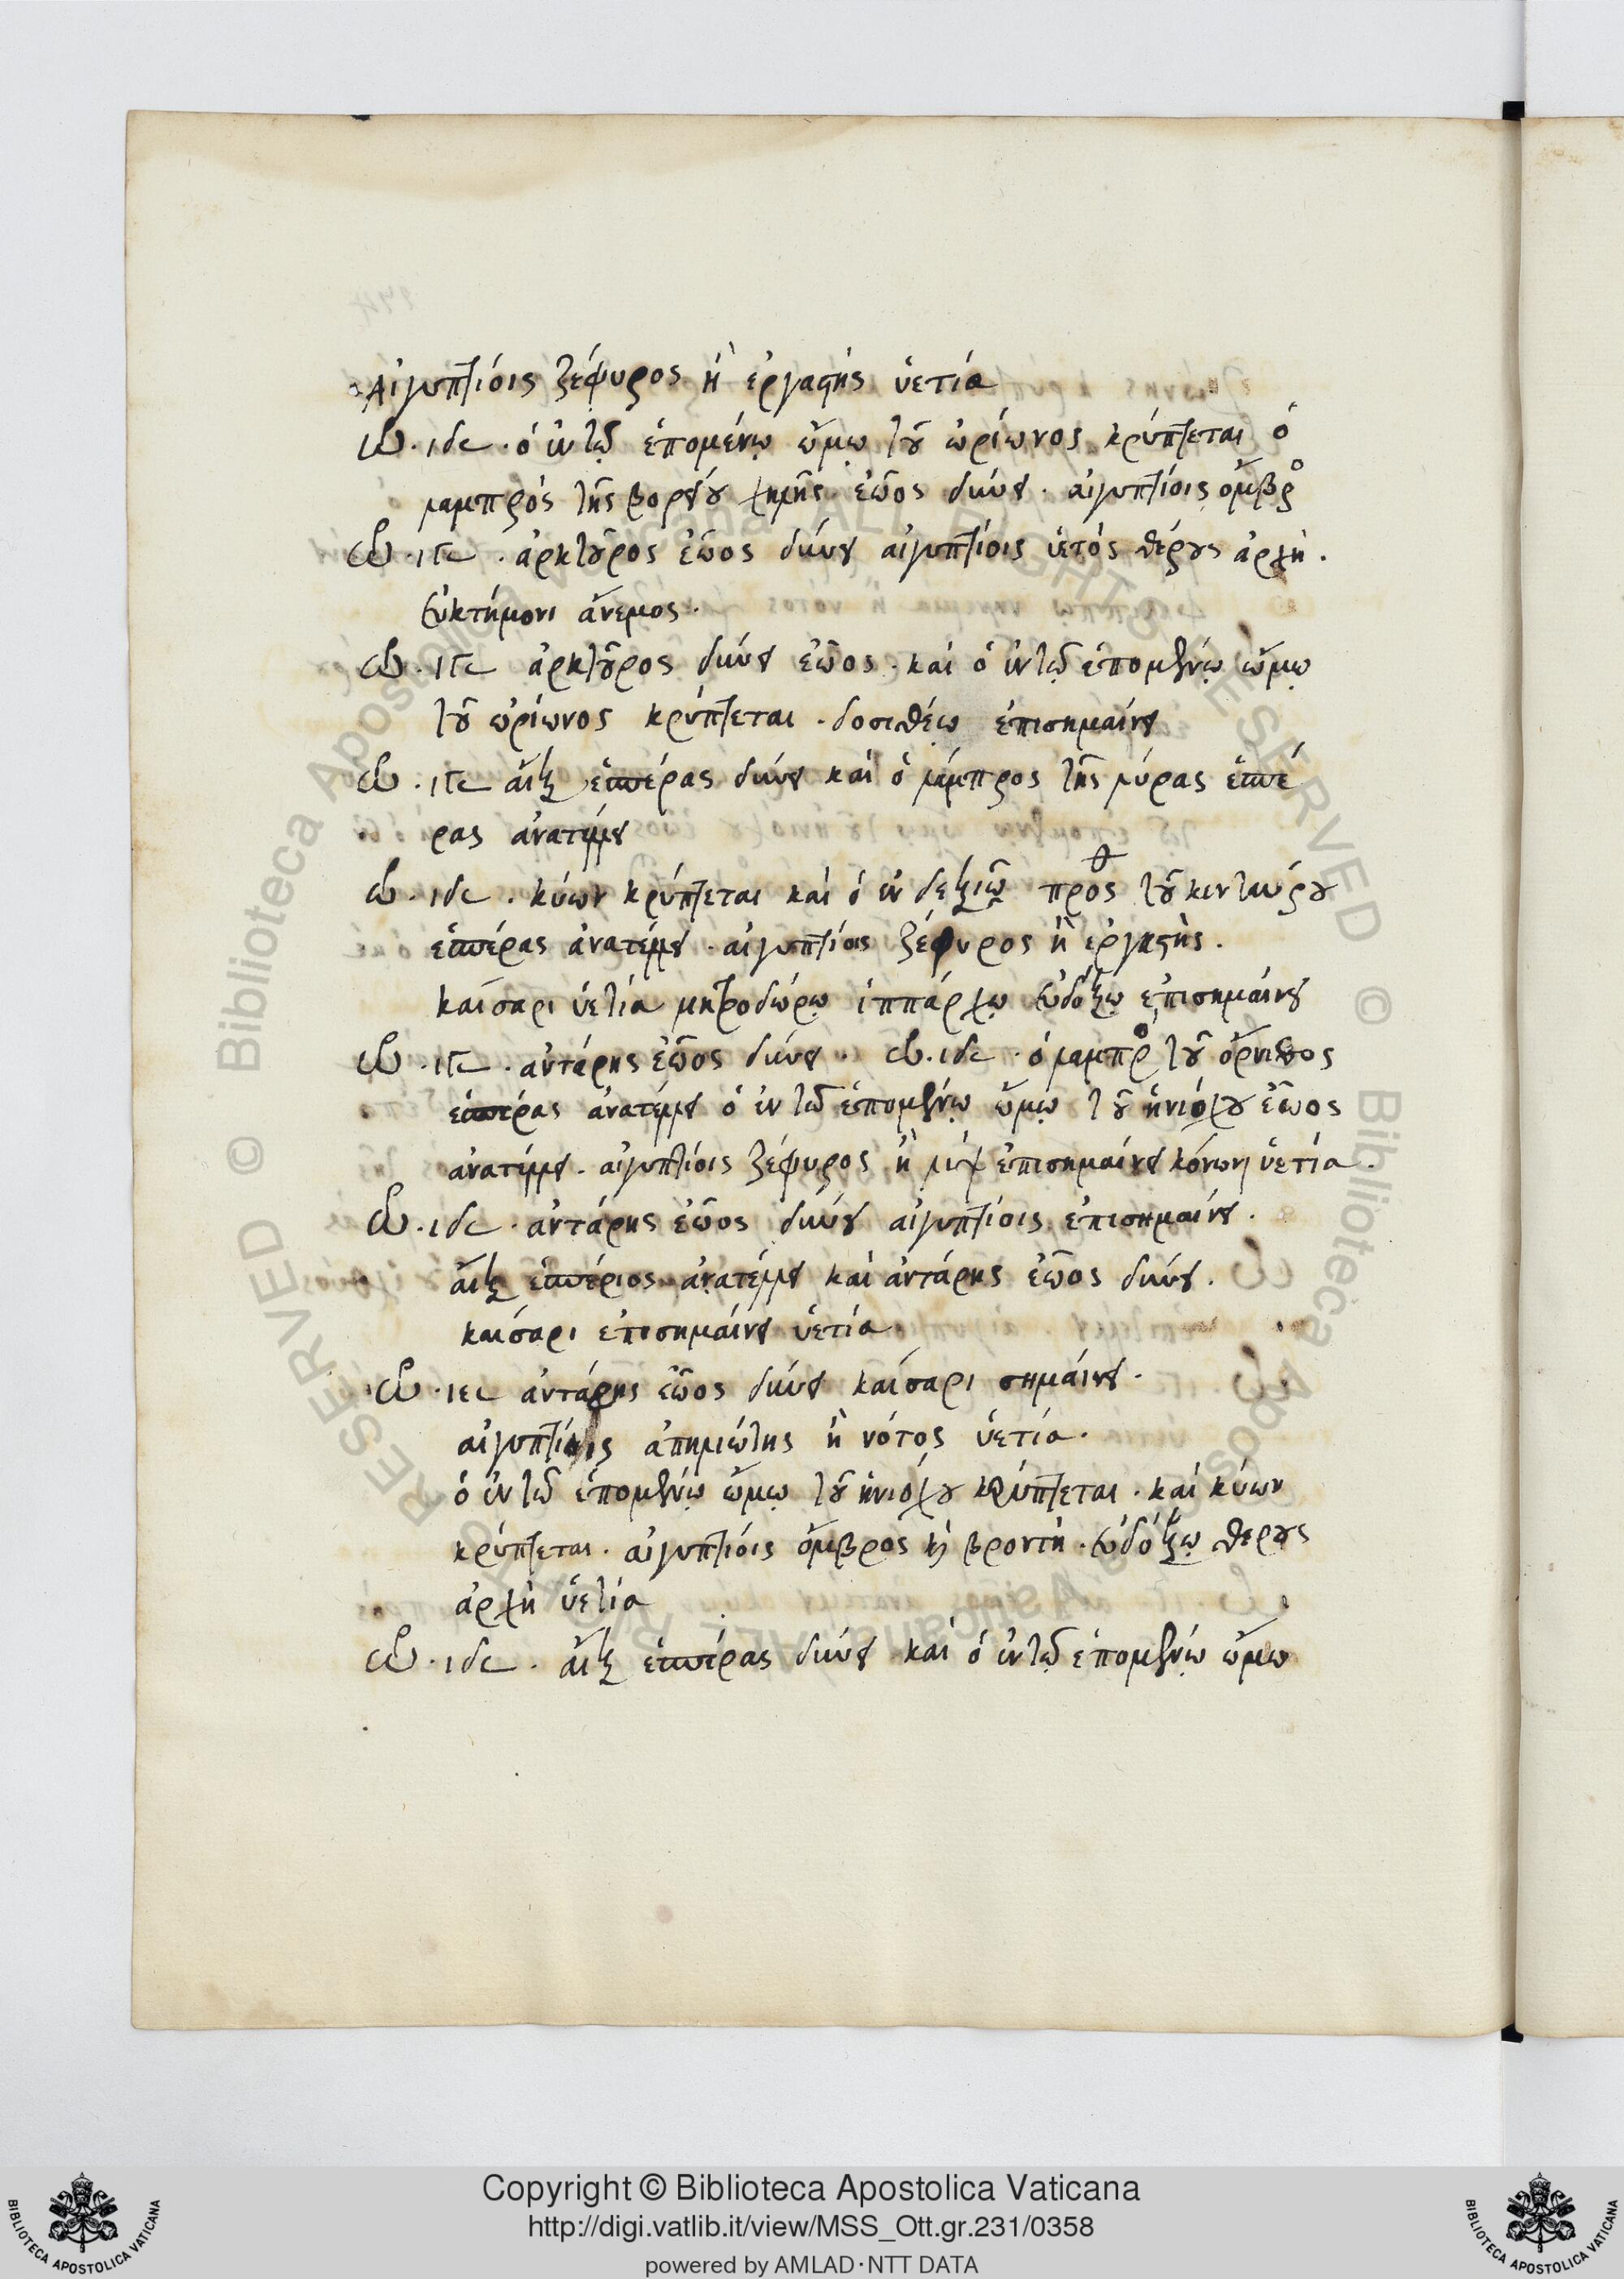 Αἰγυπτίοις ζέφυρος ἢ ἐργαςὴς ὑετία
ὡ. ιδς. ὁ ἐν τῷ ἑπομένῳ ὤμῳ τοῦ ὠρίωνος κρύπτεται ὁ
λαμπρὸς τῆς βορείου χηλῆς ἑῶος δύνει. αἰγυπτίοις ὄμβρο
ὡ. ιγς. ἀρκτοῦρος ἑῶος δύνει αἰγυπτίοις ὑετὸς θέρους ἀρχὴ.
εὐκτήμονι ἄνεμος.
ὡ. ιγς ἀρκτοῦρος δύνει ἑῶος. καὶ ὁ ἐν τῷ ἑπομένῳ ὤμῳ
τοῦ ὠρίωνος κρύπτεται. δοσιθέω ἐπισημαίνει
ὡ. ιγς αἲξ ἑσπέρας δύνει καὶ ὁ λάμπρος τῆς λύρας ἑσπέ
ρας ἀνατέλλει
ὡ. ιδς. κύων κρύπτεται καὶ ὁ ἐν δεξιῷ προς τοῦ κενταύρου
ἑσπέρας ἀνατέλλει. αἰγυπτίοις ζέφυρος ἢ ἐργαςὴς.
καίσαρι ὑετία μητροδώρῳ ἱππάρχῳ εὐδόξῳ ἐπισημαίνει
ὡ. ιγς. ἀντάρης ἑῶος δύνει. ὡ. ιδς. ὁ λαμπρο τοῦ ὄρνιθος
ἑσπέρας ἀνατέλλει ὁ ἐν τῷ ἑπομένῳ ὤμῳ τοῦ ἡνιόχου ἑῶος
ἀνατέλλει. αἰγυπτίοις ζέφυρος ἢ λὶψ ἐπισημαίνει κόνωνι ὑετία.
ὡ. ιδς. ἀντάρης ἑῶος δύνει αἰγυπτίοις ἐπισημαίνει.
αἲξ ἑσπέριος ἀνατέλλει καὶ ἀντάρης ἑῶος δύνει.
καίσαρι ἐπισημαίνει ὑετία
ὡ. ιες ἀντάρης ἑῶος δύνει καίσαρι σημαίνει.
αἰγυπτίοις ἀπηλιώτης ἢ νότος ὑετία.
ὁ ἐν τῷ ἑπομένῳ ὤμῳ τοῦ ἡνιόχου κρύπτεται. καὶ κύων
κρύπτεται. αἰγυπτίοις ὄμβρος καὶ βροντὴ. εὐδόξῳ θερους
ἀρχὴ ὑετία
ὡ. ιδς. αἲξ ἑσπέρας δύνει καὶ ὁ ἐν τῷ ἑπομένῳ ὤμω
© Biblioteca Apostolica Vaticana ALL RIGHTS RESERVED
Copyright © Biblioteca Apostolica Vaticana
http://digi.vatlib.it/view/MSS_Ott.gr.231/0358
powered by AMLAD·NTT DATA
BIBLIOTECA APOSTOLICA VATICANA
BIBLIOTECA APOSTOLICA VATICANA